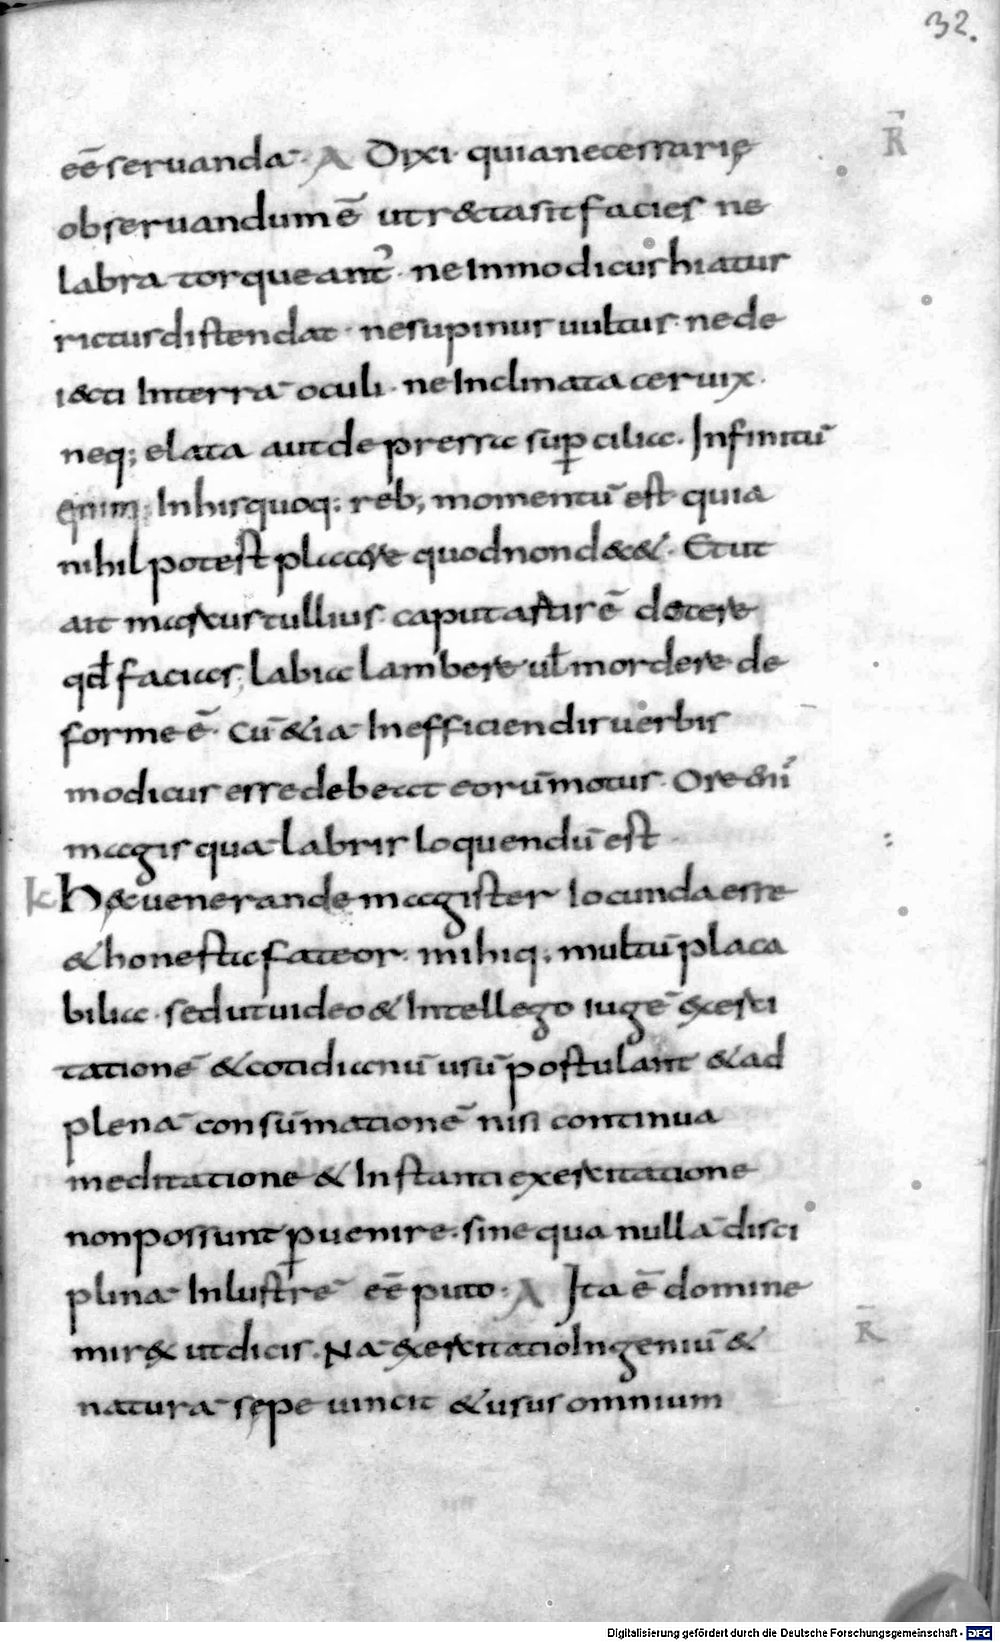 32.
R̄
eē seruanda· A Dixi· quia necessarię
obseruandum ē ut r&ta sit facies ne
labra torqueant᷒· ne Inmodicus hiatus
rictus distendat· ne supinus uultus· ne de
i&cti Interrā oculi· ne Inclinata ceruix·
neq; elata aut depressa sup̱cilia· Infinitū
enim; In his quoq; reb; momentū est quia
nihil potest placere quod non dec&· Et ut
ait marcus tullius· caput artis ē docere
qd̄ facias; labia lambere ul̄ mordere de
forme ē· Cū &iā In efficiendis uerbis
modicus esse debeat eorū motus· Ore eni᷒
magis quā labris loquendū est
k haec uenerande magister Iocunda esse
& honesta fateor· mihiq; multū placa
bilia· sed ut uideo & Intellego iugē exerci
tationē & cotidianū usū postulant & ad
plenā consūmationē nisi continua
meditatione & Instanti exercitatione
non possunt p̱uenire· sine qua nullā disci
plinā Inlustrē eē puto· A Ita ē domine
R̄
mi rex ut dicis· Nā exercitatio Ingeniū &
naturā sepe uincit & usus omnium
Digitalisierung gefördert durch die Deutsche Forschungsgemeinschaft - DFG